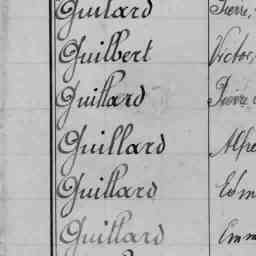 Guilard Pierre,
Guilbert Victor,
Guillard Pierre
Guillard Alfre
Guillard Edm
Guillard Emm